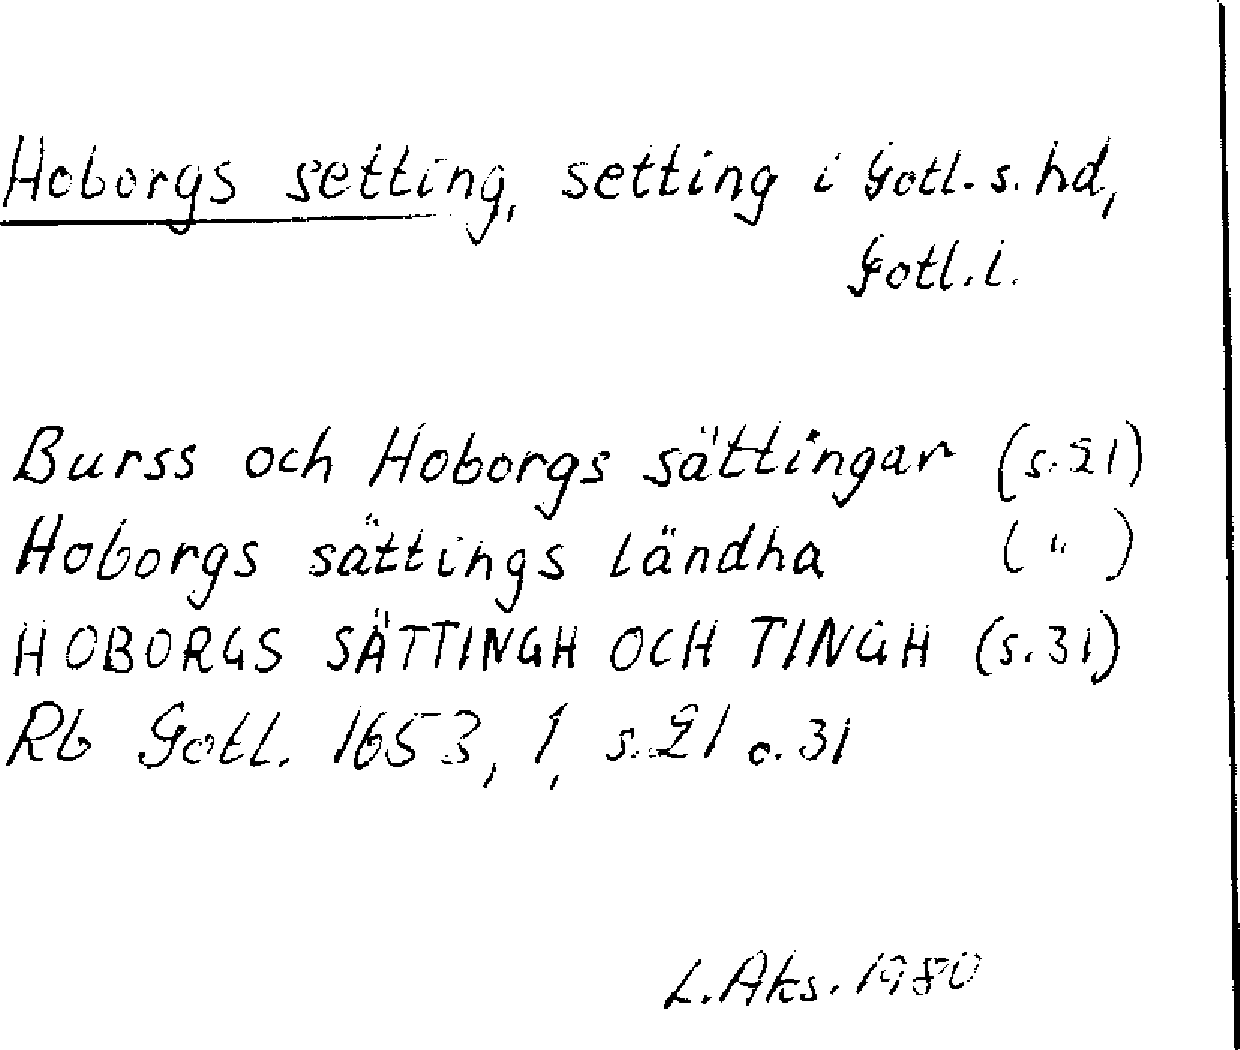 Hoborgs setting, setting i Gotl. s. hd,
Gotl. l.
Burss och Hoborgs sättingar (s. 21)
Hoborgs sättings ländha ( " )
HOBORGS SÄTTINGH OCH TINGH (s. 31)
Rb Gotl. 1653, 1, s. 21 o. 31
L. Aks. 1980